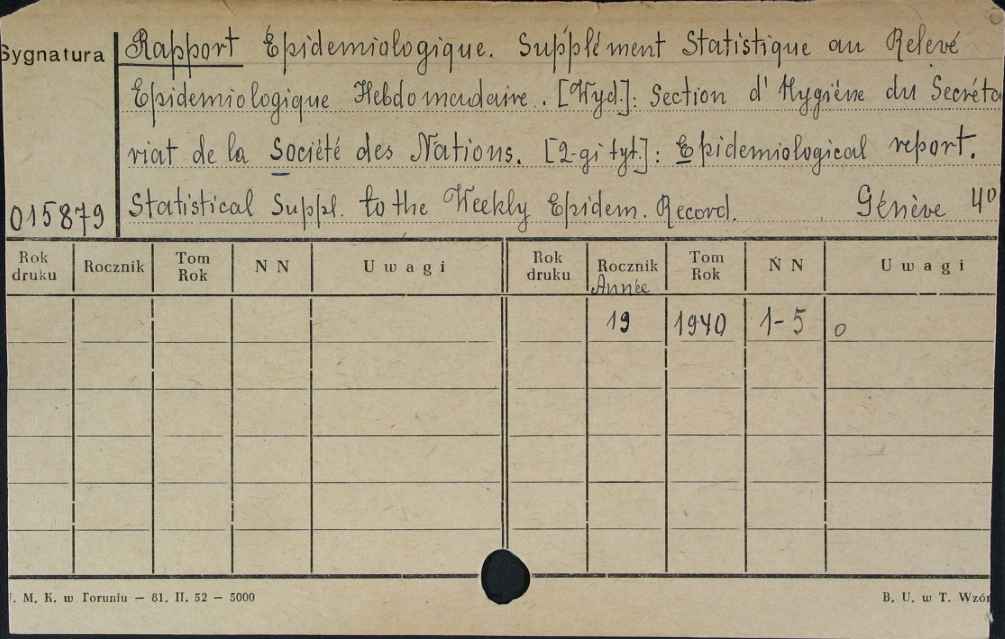 Sygnatura
Rapport Epidemiologique. Supplément Statistique au Relevé
Epidemiologique Hebdomadaire. [Wyd.]: Section d'Hygiène du Secréta
riat de la Société des Nations. [2-gi tyt.]: Epidemiological report.
015879 Statistical Suppl. to the Weekly Epidem. Record. Génève 4°
Rok druku Rocznik Tom Rok N N Uwagi Rok druku Rocznik Tom Rok N N Uwagi
Année
19 1940 1-5 o
U. M. K. w Toruniu — 81. II. 52 — 5000 B. U. w T. Wzór